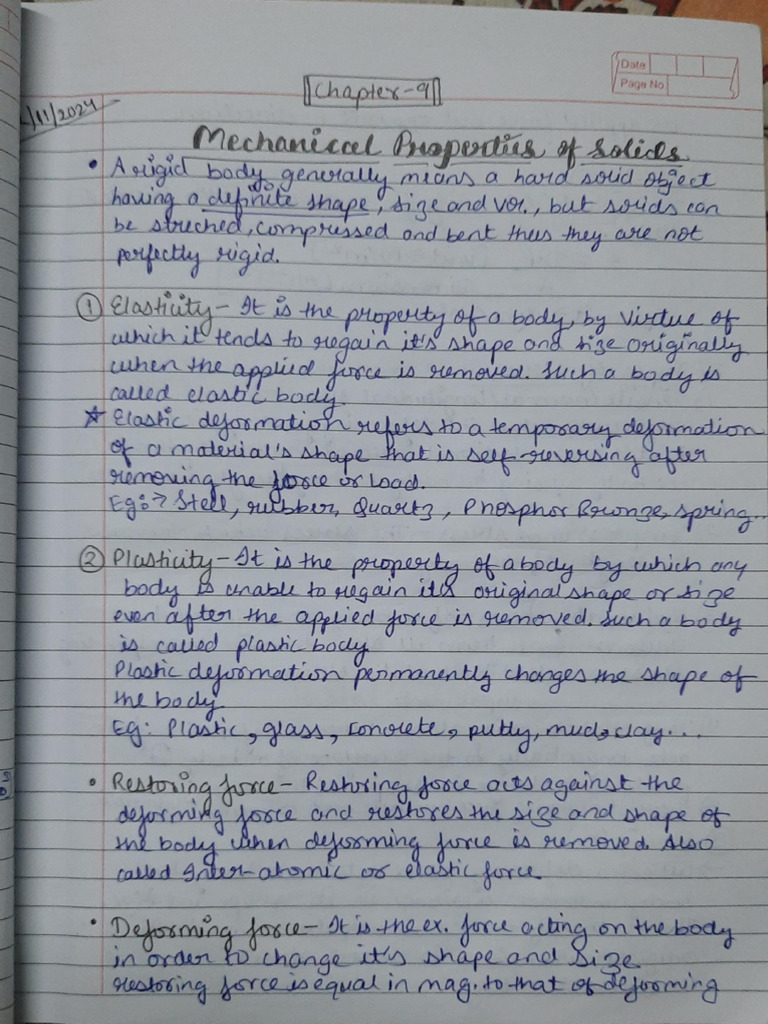 Date
Page No.
Chapter-9
/11/2024
Mechanical Properties of Solids
• A rigid body generally means a hard solid object
having a definite shape, size and vol., but solids can
be streched, compressed and bent thus they are not
perfectly rigid.
① Elasticity - It is the property of a body, by virtue of
which it tends to regain it's shape and size originally
when the applied force is removed. Such a body is
called elastic body.
☆ Elastic deformation refers to a temporary deformation
of a material's shape that is self-reversing after
removing the force or load.
Eg:→ Steel, rubber, Quartz, Phosphor Bronze, spring...
② Plasticity - It is the property of a body by which any
body is unable to regain its original shape or size
even after the applied force is removed. Such a body
is called plastic body.
Plastic deformation permanently changes the shape of
the body.
Eg: Plastic, glass, concrete, putty, mud, clay...
• Restoring force - Restoring force acts against the
deforming force and restores the size and shape of
the body when deforming force is removed. Also
called Inter-atomic or elastic force
• Deforming force - It is the ex. force acting on the body
in order to change it's shape and size
restoring force is equal in mag. to that of deforming